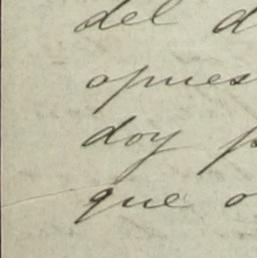 del d
opues
doy p
que o